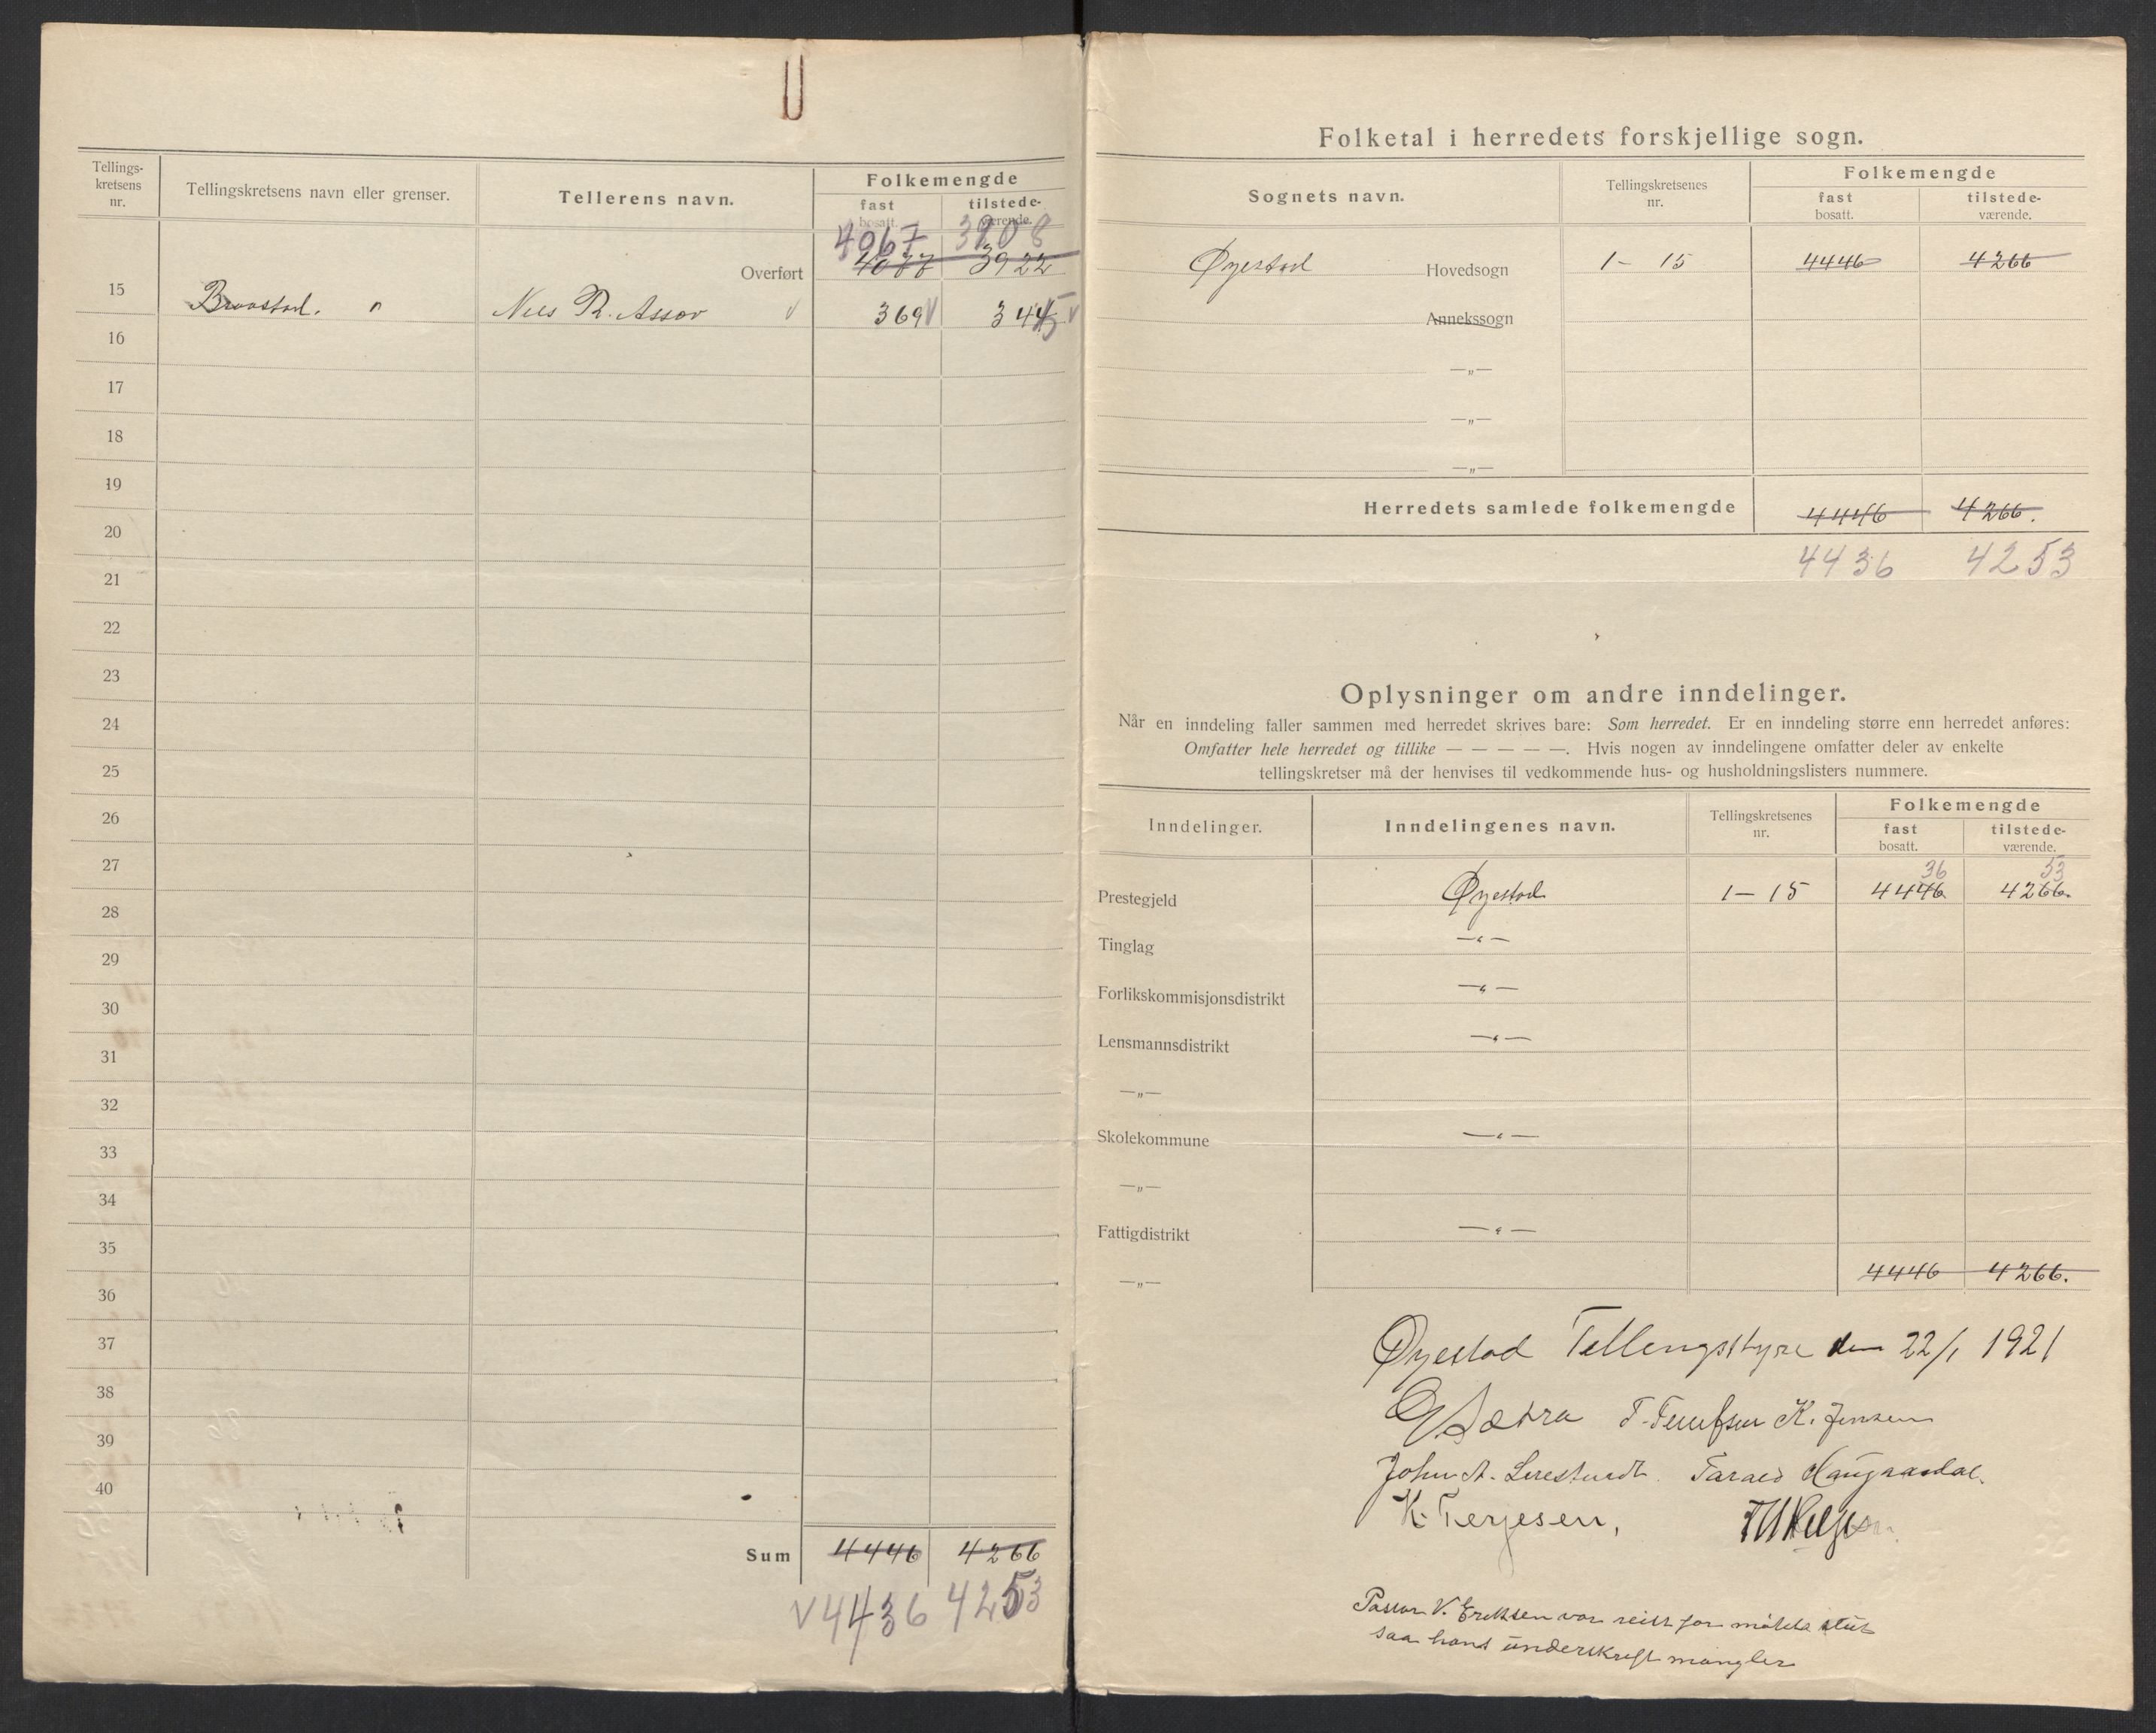 Tellings-
kretsens
nr.
Tellingskretsens navn eller grenser.
Tellerens navn.
Folkemengde
fast
bosatt.
tilstede-
værende.
4067 3908
Overført 4077 3922
15 Braastad. " Nils R. Assev √ 369 √ 344 5 √
16
17
18
19
20
21
22
23
24
25
26
27
28
29
30
31
32
33
34
35
36
37
38
39
40
Sum 4446 4266
√ 4436 4253
Folketal i herredets forskjellige sogn.
Sognets navn.
Tellingskretsenes
nr.
Folkemengde
fast
bosatt.
tilstede-
værende.
Øyestad Hovedsogn 1 - 15 4446 4266
Annekssogn
—„—
—„—
—„—
Herredets samlede folkemengde 4446 4266.
4436 4253
Oplysninger om andre inndelinger.
Når en inndeling faller sammen med herredet skrives bare: Som herredet. Er en inndeling større enn herredet anføres:
Omfatter hele herredet og tillike — — — — —. Hvis nogen av inndelingene omfatter deler av enkelte
tellingskretser må der henvises til vedkommende hus- og husholdningslisters nummere.
Inndelinger.
Inndelingenes navn.
Tellingskretsenes
nr.
Folkemengde
fast
bosatt.
tilstede-
værende.
36 53
Prestegjeld Øyestad 1 - 15 4446 4266.
Tinglag —"—
Forlikskommisjonsdistrikt —"—
Lensmannsdistrikt —"—
—„—
Skolekommune —"—
—„—
Fattigdistrikt —"—
—„— 4446 4266.
Øyestad Tellingsstyre den 22/1 1921
K. Jensen
John A.
K. Terjesen,
Pastor V. Eriksen var reist før møtets slut
saa hans underskrift mangler